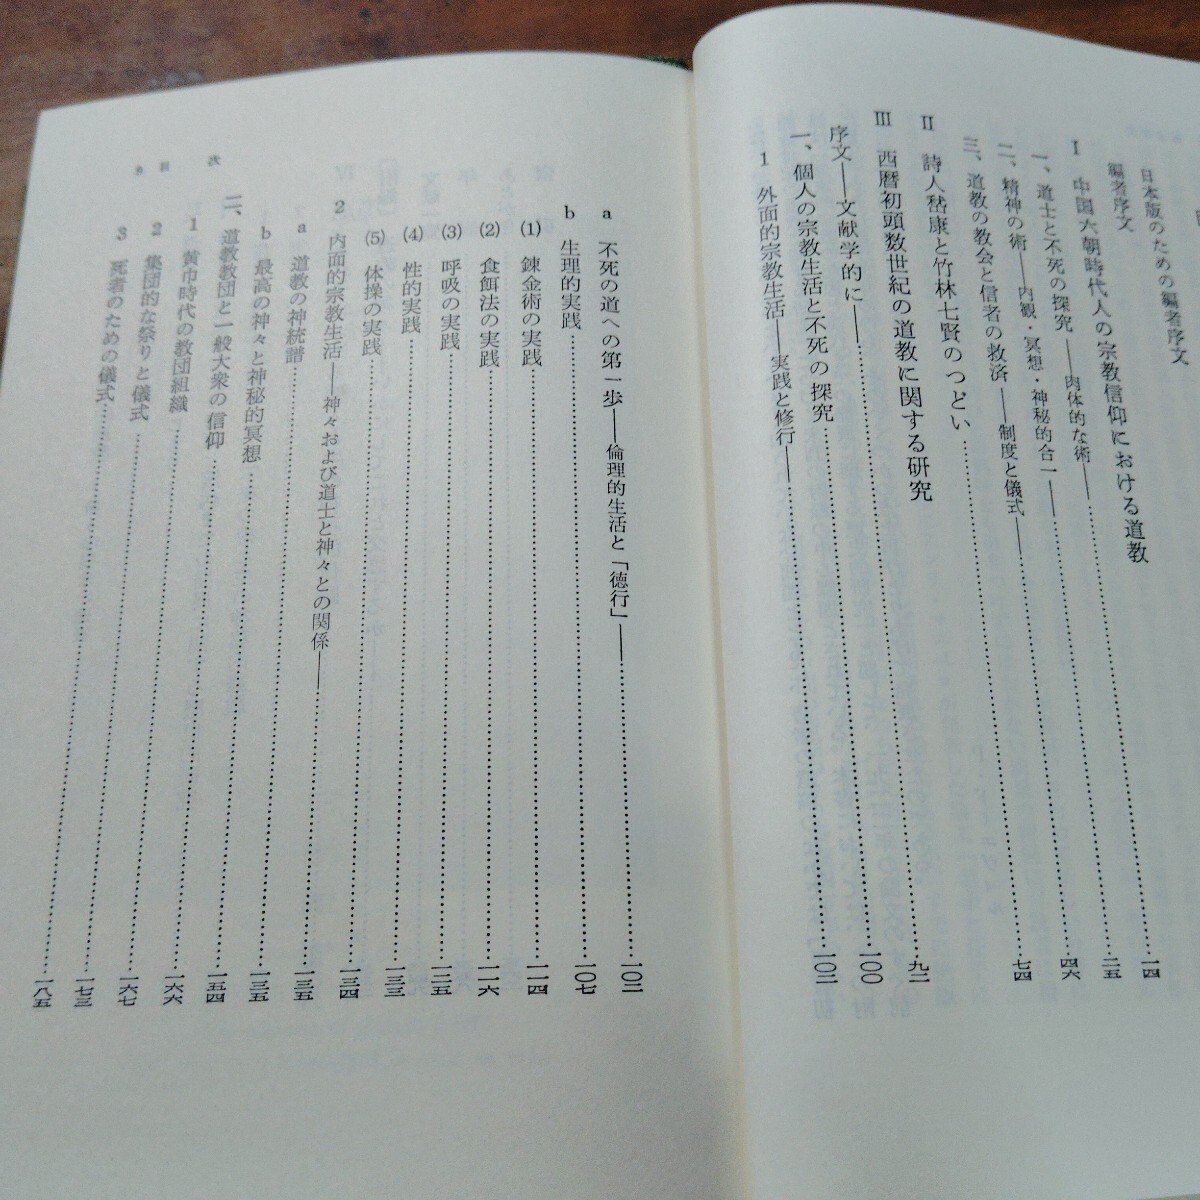 日本版のための編者序文
編者序文
Ⅰ 中国六朝時代人の宗教信仰における道教
一、道士と不死の探究——肉体的な術——一四
二、精神の術——内観・冥想・神秘的合一——二五
三、道教の教会と信者の救済——制度と儀式——四六
Ⅱ 詩人嵆康と竹林七賢のつどい……七四
Ⅲ 西暦初頭数世紀の道教に関する研究
序文——文献学的に——九二
一、個人の宗教生活と不死の探究……一〇〇
1 外面的宗教生活——実践と修行——一〇二
a 不死の道への第一歩——倫理的生活と「徳行」——一〇二
b 生理的実践……一〇七
(1) 錬金術の実践……一一四
(2) 食餌法の実践……一一六
(3) 呼吸の実践……一二五
(4) 性的実践……一三三
(5) 体操の実践……一三四
2 内面的宗教生活——神々および道士と神々との関係——一三五
a 道教の神統譜……一三五
b 最高の神々と神秘的冥想……一五四
二、道教教団と一般大衆の信仰……一六六
1 黄巾時代の教団組織……一六七
2 集団的な祭りと儀式……一七三
3 死者のための儀式……一八五
目次